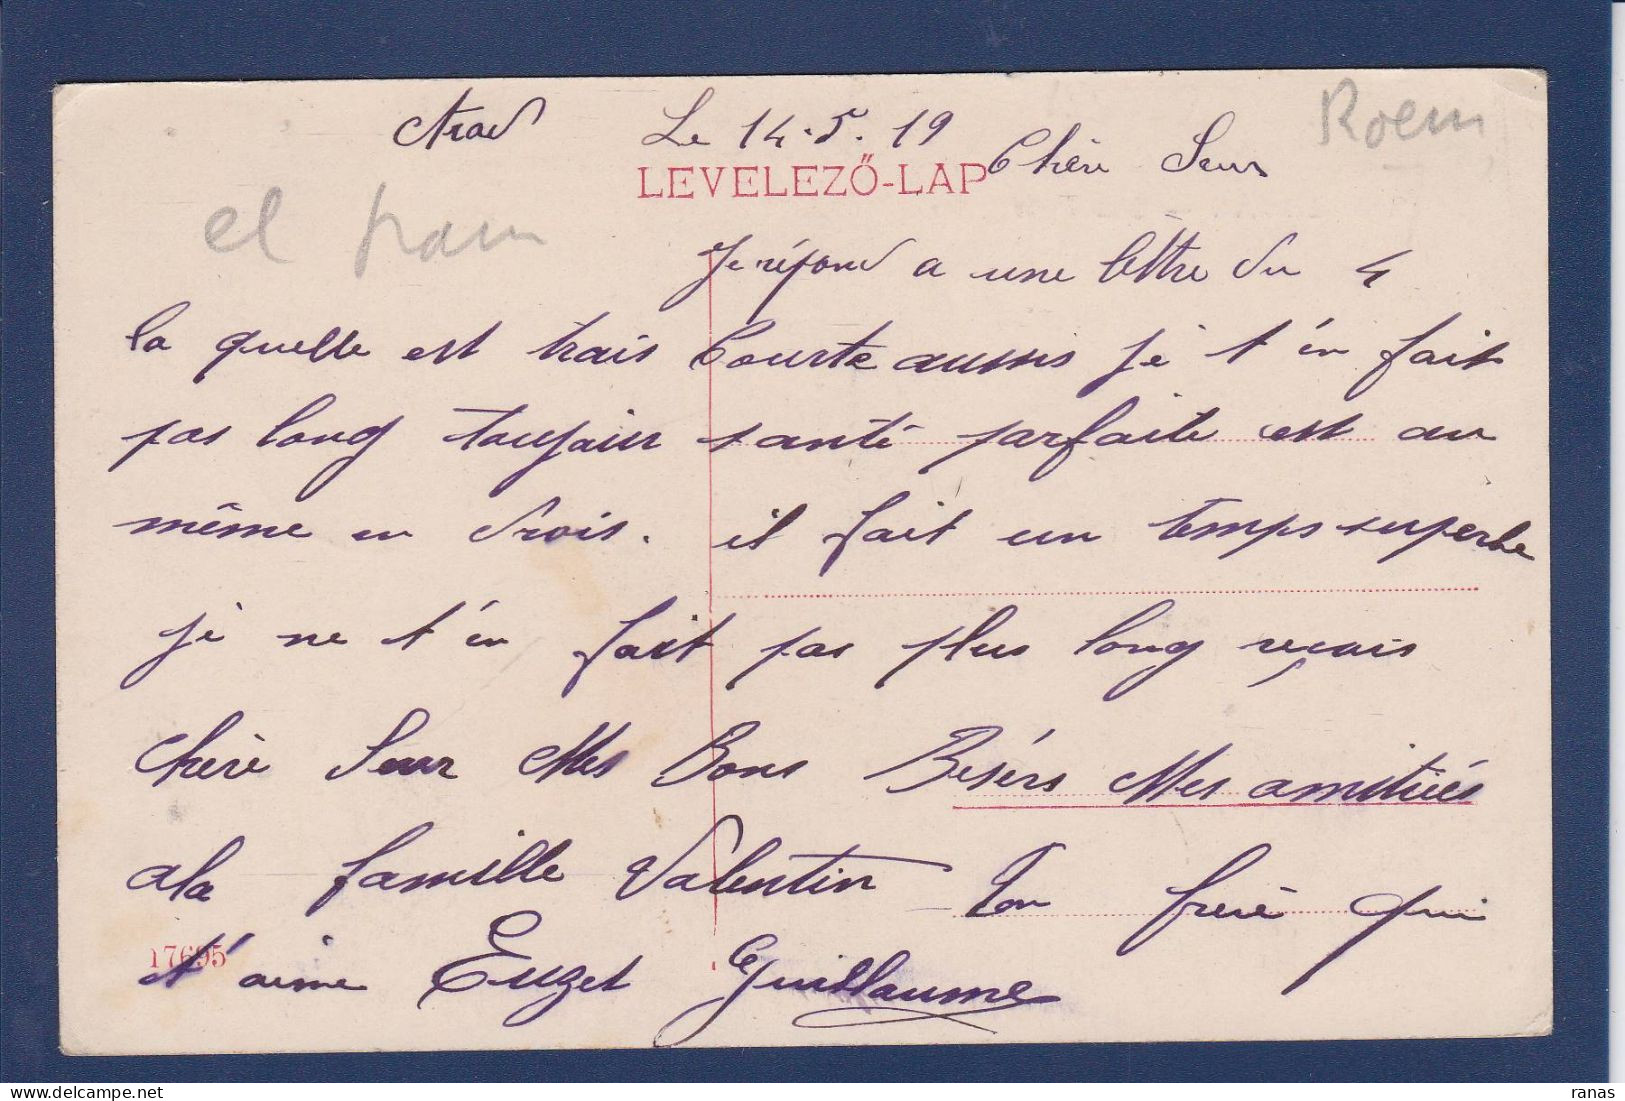 Arad Le 14.5.19
Roem
LEVELEZŐ-LAP
Chère Seur
el tram
Je répond a une lettre du 4
la quelle est trais Courte aussis je t'en fait
pas long toujour santé parfaite est au
même en drois. il fait un temps superbe
je ne t'en fait pas plus long reçais
chère Seur Mes Bons Besérs Mes amitiés
a la famille Valentin Ton frère qui
17695
t'aime Euzet Guillaume
ranas